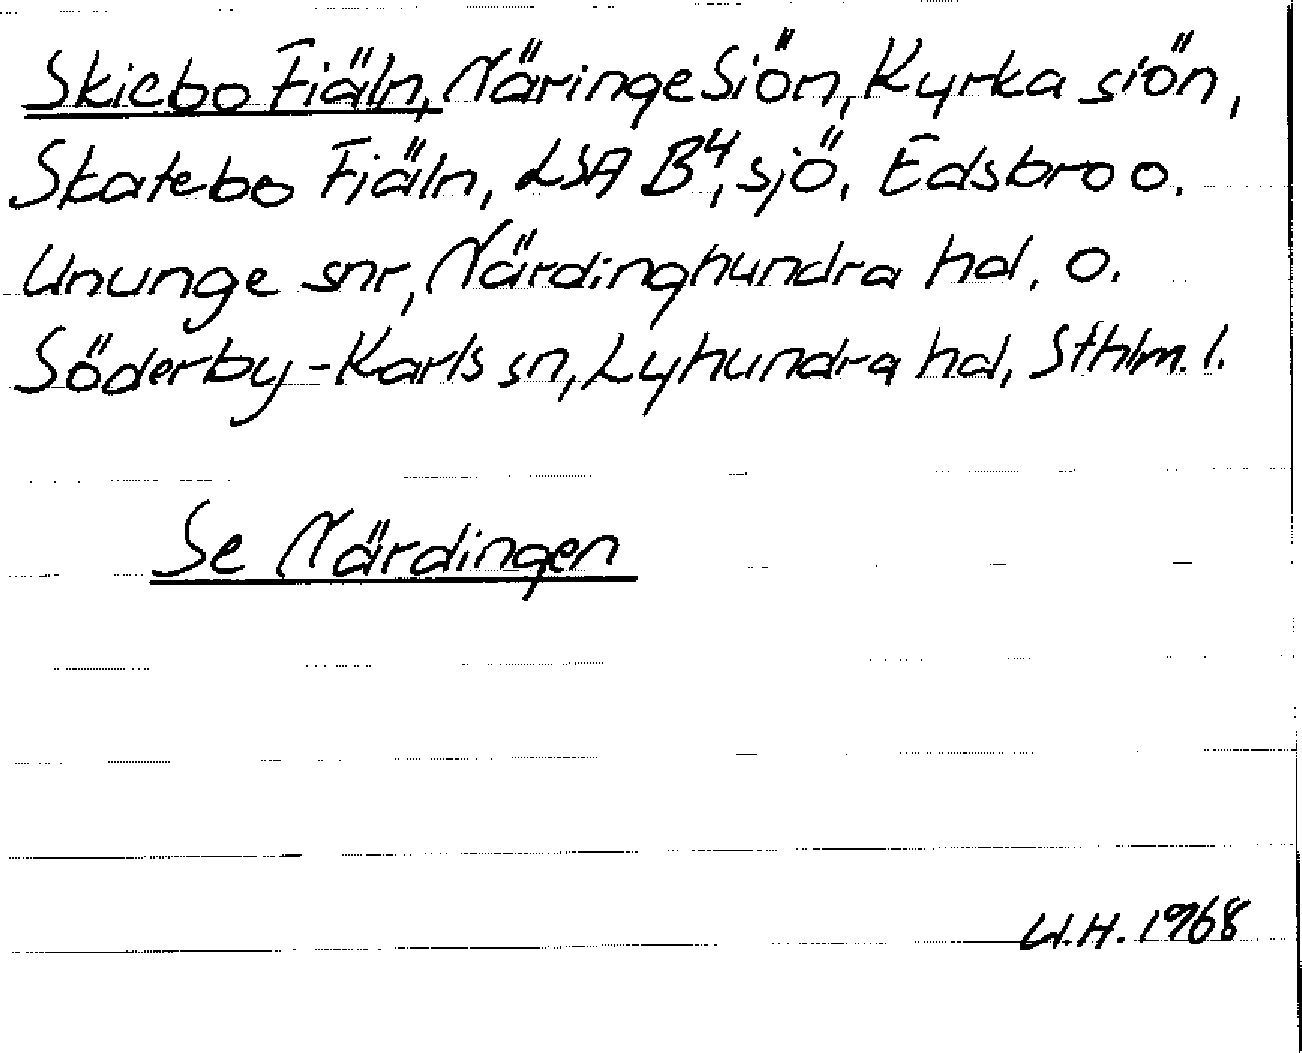 Skiebo Fiäln, Näringe Siön, Kyrka siön,
Skatebo Fiäln, LSA B⁴, sjö, Edsbro o.
Ununge snr, Närdinghundra hd, o.
Söderby-Karls sn, Lyhundra hd, Sthlm. l.
Se Närdingen
U.H. 1968